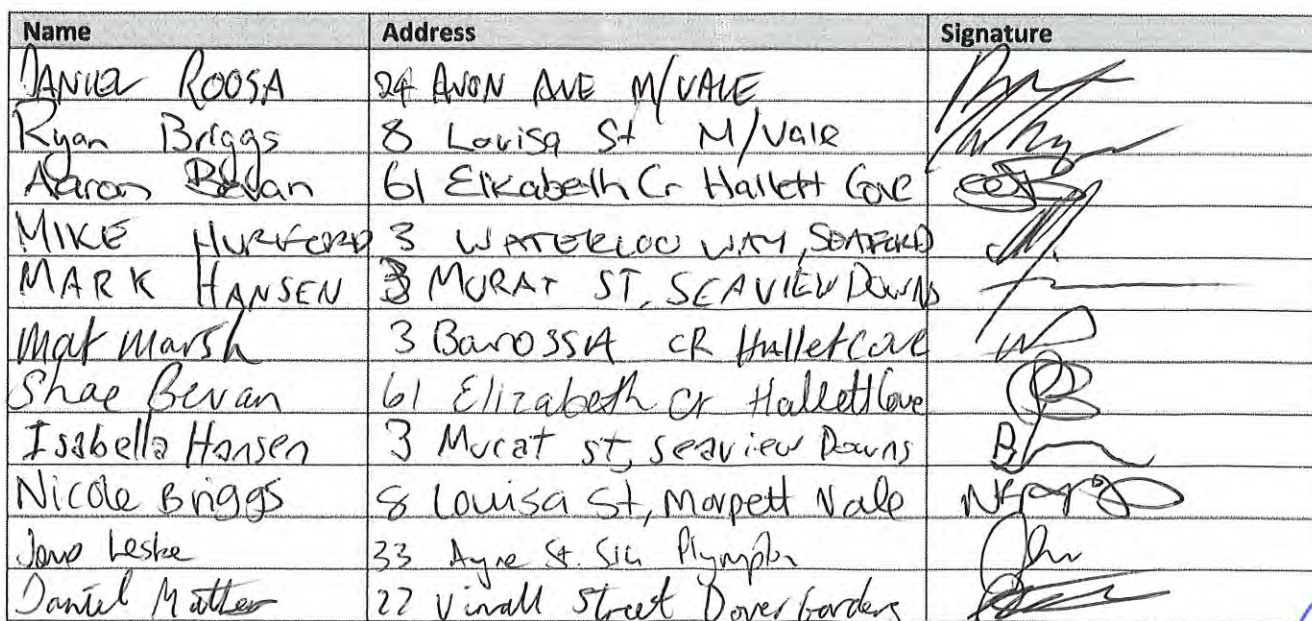 Name Address Signature
DANIEL ROOSA 24 AVON AVE M/VALE
Ryan Briggs 8 Louisa St M/Vale
Aaron Bevan 61 Elizabeth Cr Hallett Cove
MIKE HURFORD 3 WATERLOO WAY, SEAFORD
MARK HANSEN 3 MURAT ST, SEAVIEW DOWNS
Mat Marsh 3 BaroSSA CR Hallet Cove
Shae Bevan 61 Elizabeth Cr Hallett Cove
Isabella Hansen 3 Murat st, seaview Downs
Nicole Briggs 8 Louisa St, Morpett Vale
Leske 33 St. Sth Plympton
Daniel 22 Street Dover Gardens